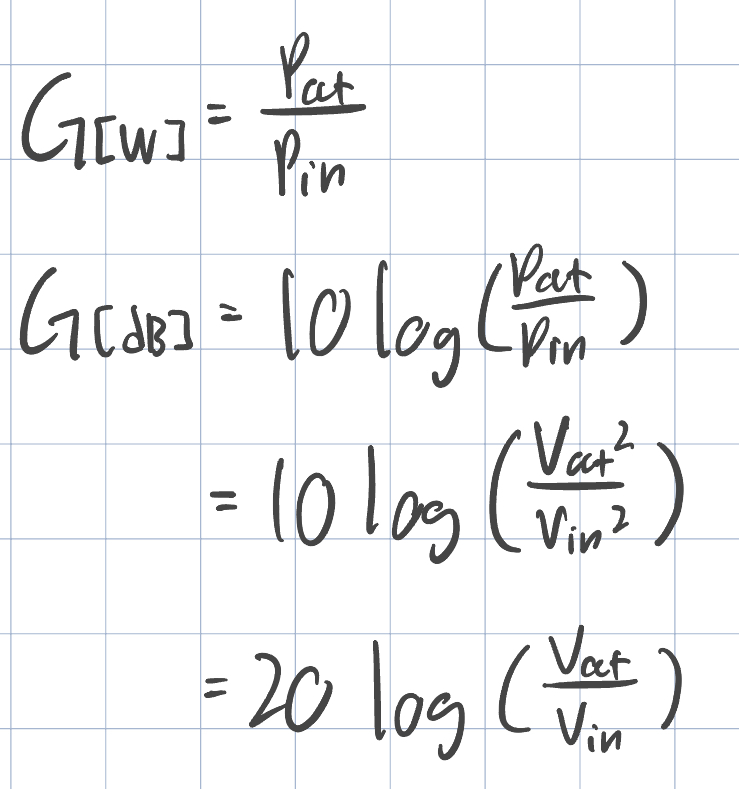 G[W] = Pout/Pin
G[dB] = 10 log(Pout/Pin)
= 10 log(Vout²/Vin²)
= 20 log(Vout/Vin)